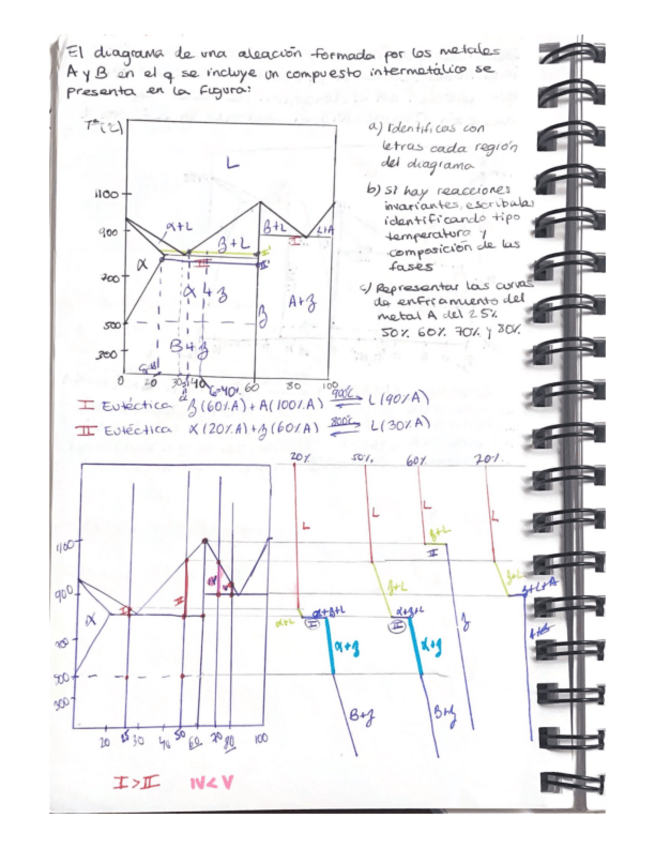 El diagrama de una aleación formada por los metales
A y B en el q se incluye un compuesto intermetálico se
presenta en la figura:
a) Identificas con
letras cada región
del diagrama
b) si hay reacciones
invariantes, escríbalas
identificando tipo
temperatura y
composición de las
fases
c) Representar las curvas
de enfriamiento del
metal A del 25%
50% 60% 70% y 80%
L
1100
α+L
β+L
β+L
L+A
900
I
III
α
700
A+z
500
β+z
300
0
20
40
60
80
100
I Eutéctica z(60%A)+A(100%A) 90% L(90%A)
II Eutéctica α(20%A)+z(60%A) 800% L(30%A)
20% 50% 60% 70%
L L L L
z+L
1100
II
z+L
z+L
900
z+L+A
α+L
α+z+L
α+z+L
II
II
α
700
α+z
α+z
z
500
300
B+z
B+z
20 30 40 50 60 70 80 100
I>II IV<V